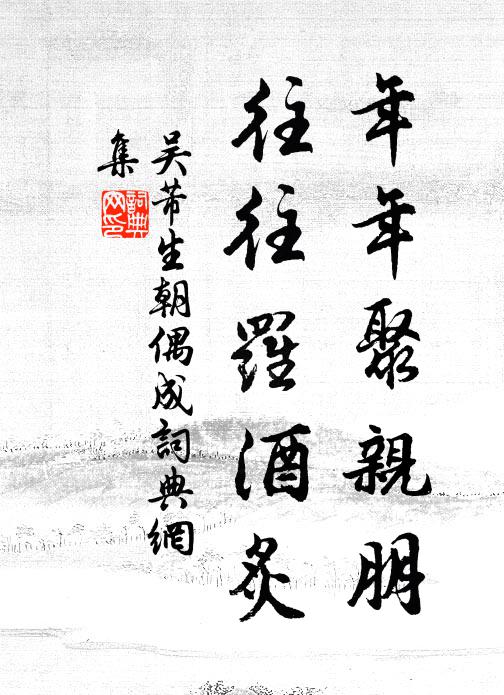 年年聚親朋
往往羅酒炙
吳芾生朝偶成詞典網
集
詞典
网印